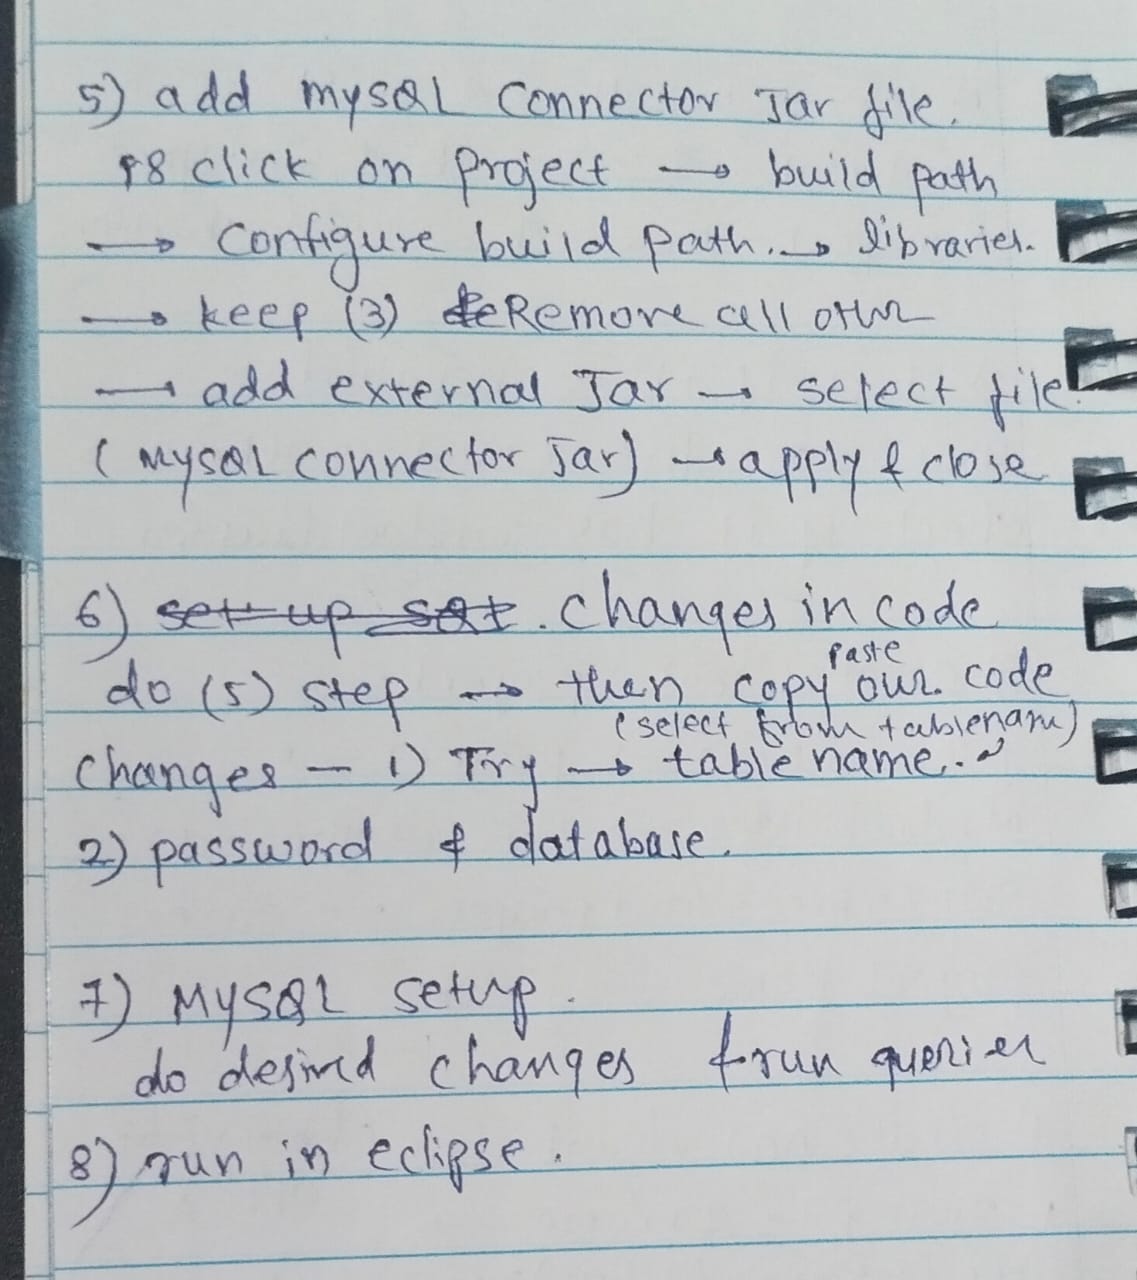 5) add mysQL Connector Jar file.
click on project → build path
→ Configure build path. → libraries.
→ keep (3) Remove all other
→ add external Jar → select file.
(MysQL connector Jar) → apply & close
6) set up sqt. Changes in code
paste
do (5) step → then copy our code
(select from tablename)
Changes — 1) Try → table name.
2) password & database.
7) MYSQL setup.
do desired changes & run queries
8) run in eclipse.